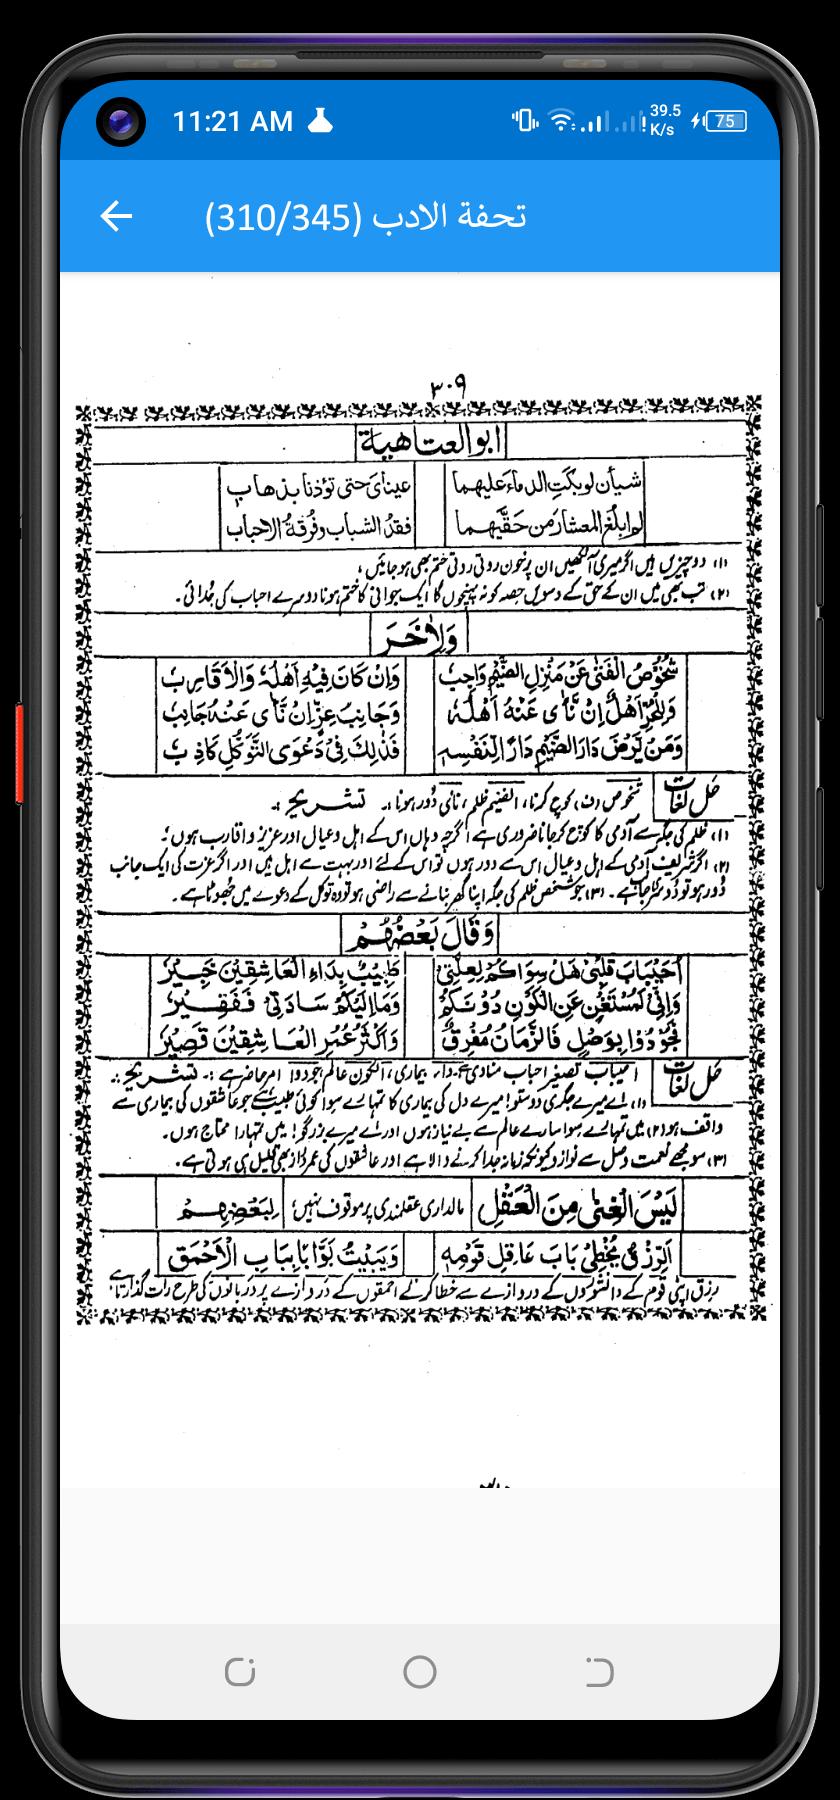 11:21 AM
39.5
K/s
75
تحفة الادب (310/345)
۳۰۹
ابو العتاهية
شيأن لو بكت الدماء عليهما عيناى حتى تؤذنا بذهاب
لم ابلغ المعشار من حقيهما فقد الشباب وفرقة الاحباب
(۱) دو چیزیں ہیں اگر میری آنکھیں ان پر خون روتی روتی ختم بھی ہو جائیں،
(۲) تب بھی میں ان کے حق کے دسویں حصہ کو نہ پہنچوں گا ایک جوانی کا ختم ہونا دوسرے احباب کی جُدائی۔
وَلِاٰخَرَ
شُخُوْصُ الْفَتٰى عَنْ مَنْزِلِ الضَّيْمِ وَاجِبٌ وَاِنْ كَانَ فِيْهِ اَهْلُهٗ وَالْاَقَارِبُ
وَلِلْحُرِّ اَهْلٌ اِنْ نَأٰى عَنْهُ اَهْلُهٗ وَجَانِبُ عِزٍّ اِنْ نَأٰى عَنْهُ جَانِبُ
وَمَنْ يَرْضَ دَارَ الضَّيْمِ دَارًا لِنَفْسِهٖ فَذٰلِكَ فِيْ دَعْوَى التَّوَكُّلِ كَاذِبُ
حل لغات
شخوص (ن) کوچ کرنا، الضیم ظلم، نأی دُور ہونا:۔ تشریح:۔
(۱) ظلم کی جگہ سے آدمی کا کوچ کر جانا ضروری ہے اگرچہ وہاں اس کے اہل وعیال اور عزیز و اقارب ہوں؛
(۲) اگر شریف آدمی کے اہل وعیال اس سے دور ہوں تو اس کے لئے اور بہت سے اہل ہیں اور اگر عزت کی ایک جانب
دُور ہو تو دوسری جانب ہے۔ (۳) جو شخص ظلم کی جگہ اپنا گھر بنانے سے راضی ہو تو وہ توکل کے دعوے میں جھوٹا ہے۔
وَقَالَ بَعْضُهُمْ
اُحَيْبَابَ قَلْبِيْ هَلْ سِوَاكُمْ لِعِلَّتِيْ طَبِيْبٌ بِدَاءِ الْعَاشِقِيْنَ خَبِيْرُ
وَاِنِّيْ لَمُسْتَغْنٍ عَنِ الْكَوْنِ دُوْنَكُمْ وَمَا اِلَيْكُمْ سَادَتِيْ فَفَقِيْرُ
فَجُوْدُوْا بِوَصْلٍ فَالزَّمَانُ مُفَرِّقٌ وَاَكْثَرُ عُمْرِ الْعَاشِقِيْنَ قَصِيْرُ
حل لغات
احیباب تصغیر احباب منادی ہے، داء بیماری، الکون عالم، جودوا امر حاضر ہے:۔ تشریح:۔
(۱) اے میرے جگری دوستو! میرے دل کی بیماری کا تمہارے سوا کوئی طبیب ہے جو عاشقوں کی بیماری سے
واقف ہو (۲) میں تمہارے سوا سارے عالم سے بے نیاز ہوں اور اے میرے بزرگو! میں تمہارا محتاج ہوں۔
(۳) سو مجھے نعمت وصل سے نوازو کیونکہ زمانہ جدا کرنے والا ہے اور عاشقوں کی عمر دراز بھی قلیل ہی ہوتی ہے۔
لَيْسَ الْغِنٰى مِنَ الْعَقْلِ مالداری عقلمندی پر موقوف نہیں؛ لِبَعْضِهِمْ
اَلرِّزْقُ يُخْطِئُ بَابَ عَاقِلِ قَوْمِهٖ وَيَبِيْتُ بَوَّابًا بِبَابِ الْاَحْمَقِ
رزق اپنی قوم کے دانشوروں کے دروازے سے خطا کر کے احمقوں کے دروازے پر دربانوں کی طرح رات گذارتا ہے